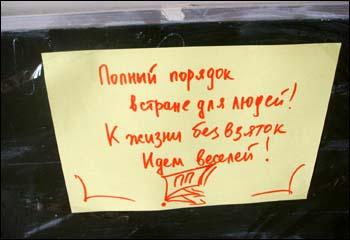 Полний порядок
встране для людей!
К жизни без взяток
Идем веселей!
ПП